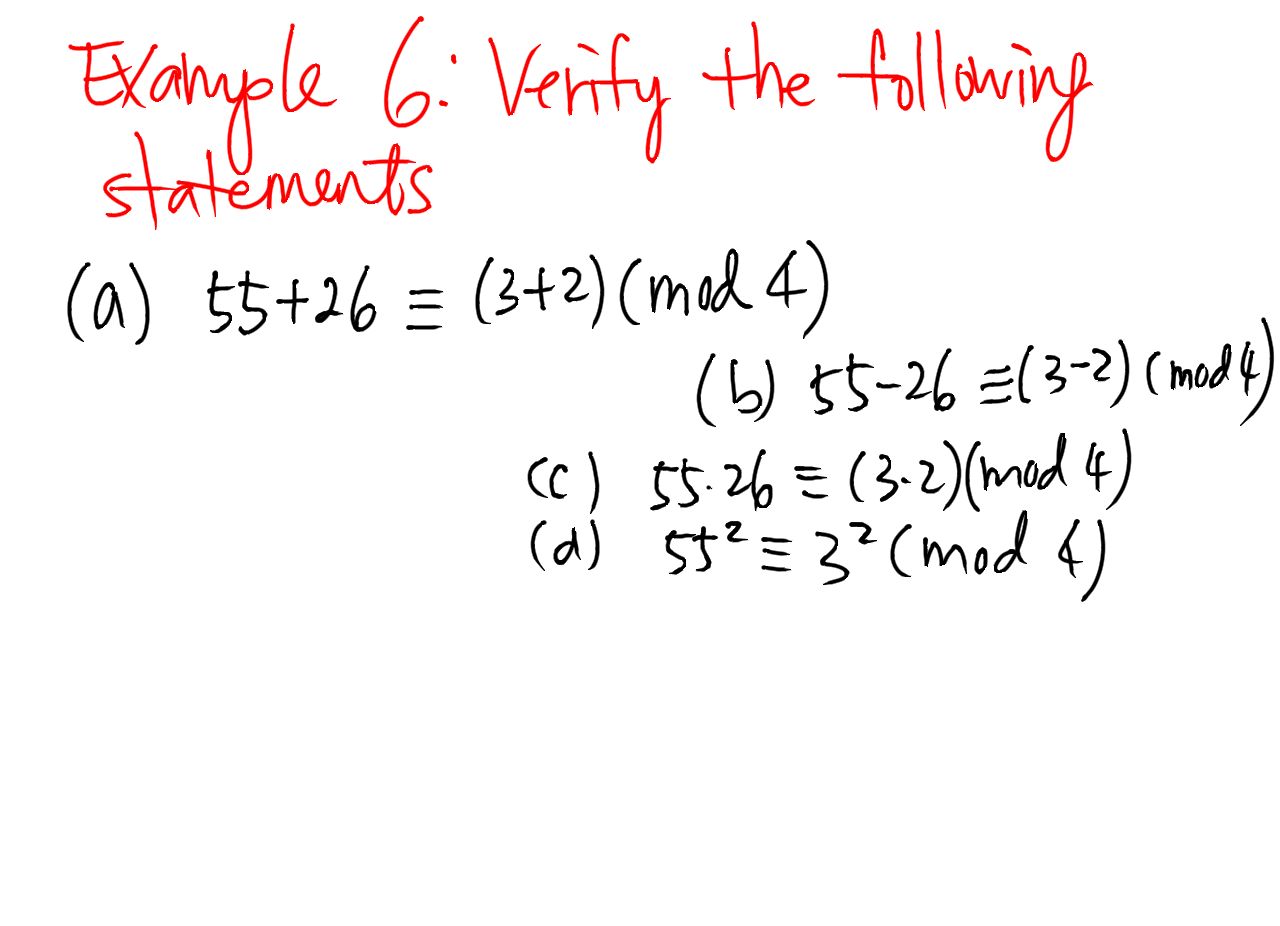 Example 6: Verify the following
statements
(a) 55+26 ≡ (3+2)(mod 4)
(b) 55-26 ≡(3-2)(mod 4)
(c) 55·26 ≡ (3·2)(mod 4)
(d) 55² ≡ 3² (mod 4)